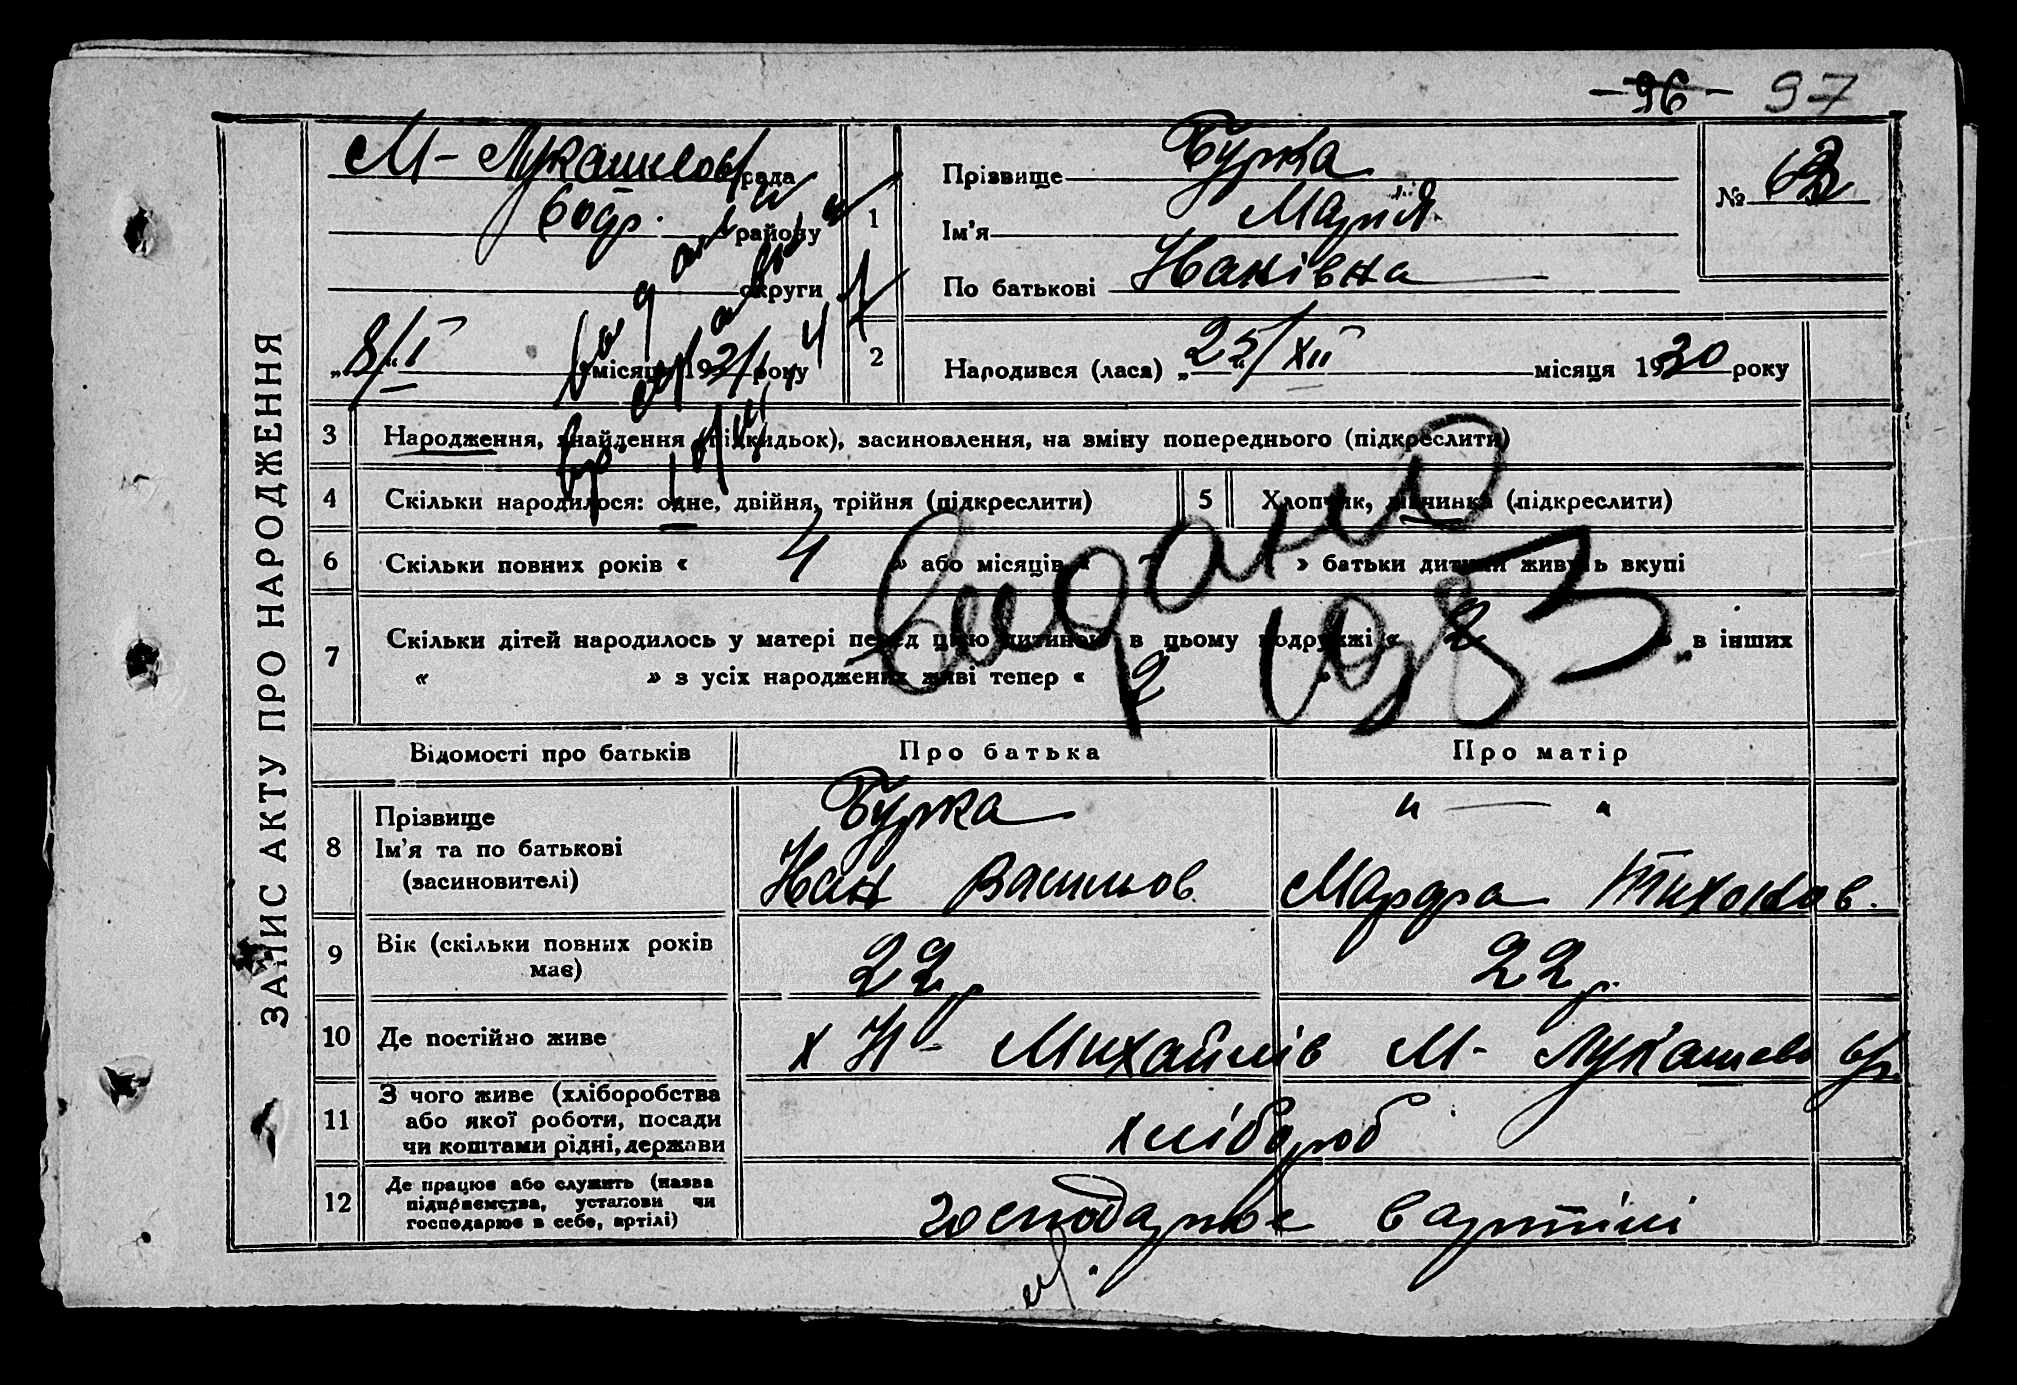 96 97
ЗАПИС АКТУ ПРО НАРОДЖЕННЯ
М-Лукашков рада
району
округи
„8/I“ місяця 1931 року
1
Прізвище Бурка
Ім'я Марія
По батькові Іванівна
№ 63
2
Народився (лася) „25/XII“ місяця 1930 року
3 Народження, знайдення (підкидьок), засиновлення, на зміну попереднього (підкреслити)
4 Скільки народилося: одне, двійня, трійня (підкреслити)
5 Хлопчик, дівчинка (підкреслити)
6 Скільки повних років « 4 » або місяців « - » батьки дитини живуть вкупі
7 Скільки дітей народилось у матері перед цією дитиною в цьому подружжі « 2 » в інших
« » з усіх народжених живі тепер « 2 »
видано
1983
Відомості про батьків
Про батька
Про матір
8 Прізвище
Ім'я та по батькові
(засиновителі)
Бурка
Іван Васильов.
" — "
Марфа Тихонов.
9 Вік (скільки повних років має)
22 р
22 р.
10 Де постійно живе
х Н- Михайлів М-
11 З чого живе (хліборобства
або якої роботи, посади
чи коштами рідні, держави
хлібороб
12 Де працює або служить (назва
підприємства, установи чи
господарює в себе, артілі)
господарює в артілі